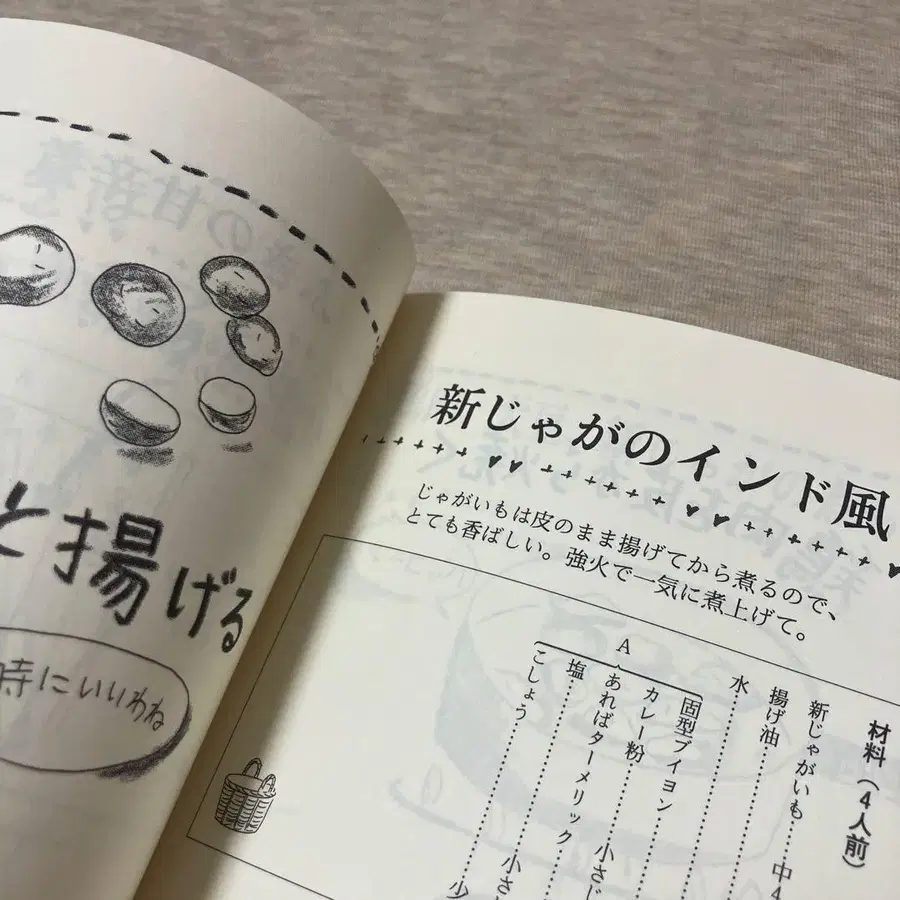 と揚げる
時にいいわね
新じゃがのインド風
じゃがいもは皮のまま揚げてから煮るので、
とても香ばしい。強火で一気に煮上げて。
材料（4人前）
新じゃがいも……中4
揚げ油……
水……
A
固型ブイヨン……
カレー粉……小さじ
あればターメリック……
塩……小さ
こしょう……少